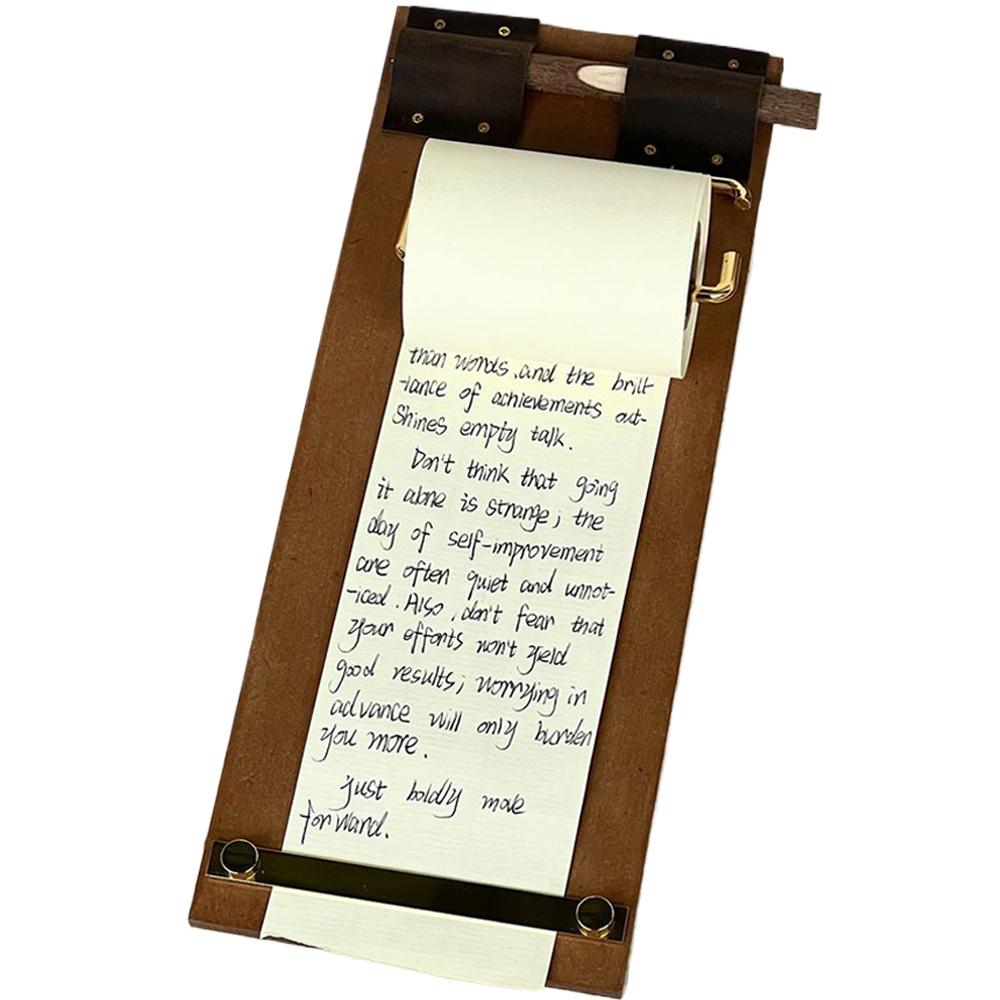 than words, and the brill-
-iance of achievements out-
shines empty talk.
Don't think that going
it alone is strange; the
day of self-improvement
are often quiet and unnot-
-iced. Also, don't fear that
your efforts won't yield
good results; worrying in
advance will only burden
you more.
just boldly move
forward.